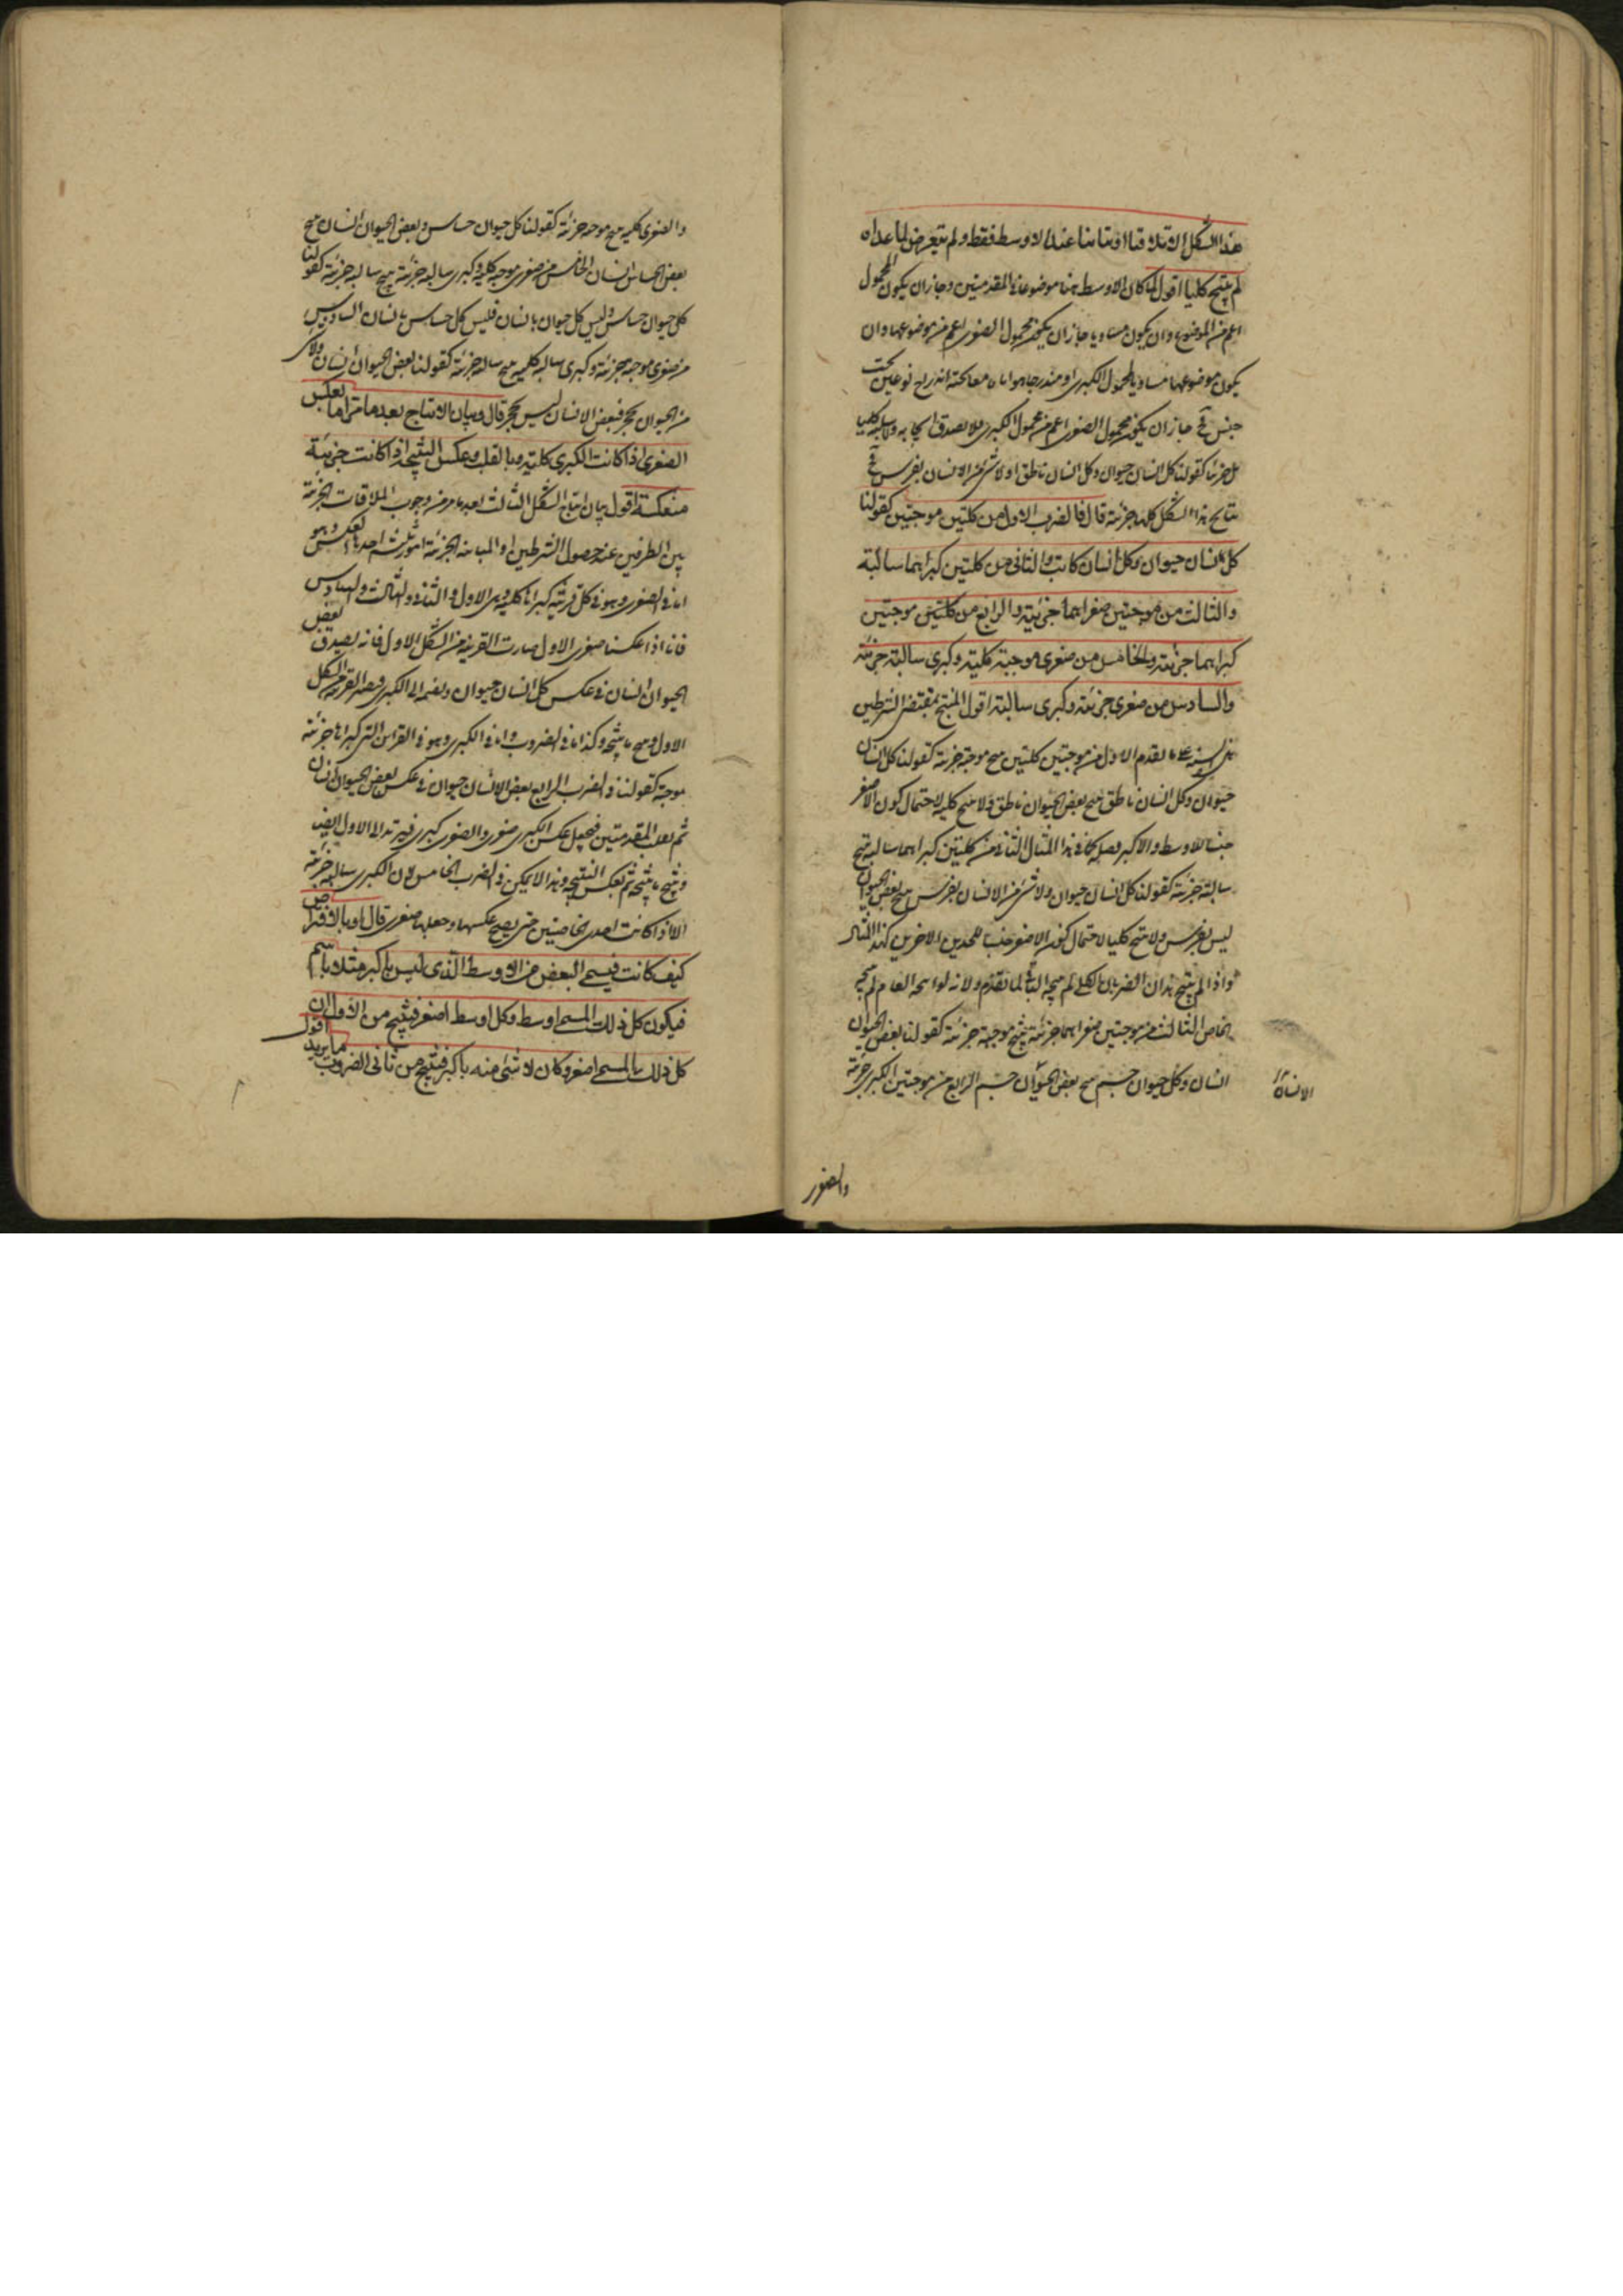 هذا الشكل الا تلاقيا او تباينا عند الاوسط فقط ولم يتعرض لما عداه
لم ينتج كليا اقول لما كان الاوسط هنا موضوعا فى المقدمتين وجاز ان يكون المحمول
اعم من الموضوع وان يكون مساويا جاز ان يكون محمول الصغرى اعم من موضوعها وان
يكون موضوعها مساويا لمحمول الكبرى او مندرجا هو اندراج نوعين تحت
جنس فح جاز ان يكون محمول الصغرى اعم من محمول الكبرى فلا يصدق ايجابه ولا سلبه كليا
بل جزئيا كقولنا كل انسان حيوان وكل انسان ناطق او لا شئ من الانسان بفرس فح
نتايج هذا الشكل كلها جزئية قال فالضرب الاول من كليتين موجبتين كقولنا
كل انسان حيوان وكل انسان كاتب والثانى من كليتين كبراهما سالبة
والثالث من موجبتين صغراهما جزئية والرابع من كليتين موجبتين
كبراهما جزئية والخامس من صغرى موجبة كلية وكبرى سالبة جزئية
والسادس من صغرى جزئية وكبرى سالبة اقول المنتج بمقتضى الشرطين
ستة لما تقدم الاول من موجبتين كليتين ينتج موجبة جزئية كقولنا كل انسان
حيوان وكل انسان ناطق ينتج بعض الحيوان ناطق ولا ينتج كلية لاحتمال كون الاصغر
جنسا للاوسط والاكبر فصله كما فى هذا المثال الثانى من كليتين كبراهما سالبة ينتج
سالبة جزئية كقولنا كل انسان حيوان ولا شئ من الانسان بفرس ينتج بعض الحيوان
ليس بفرس ولا ينتج كليا لاحتمال كون الاصغر جنسا للحدين الاخرين كهذا المثال
واذا لم ينتج هذان الضربان الكلى لم ينتجه البواقى لما تقدم ولانه لو انتجه العام لم ينتجه
الخاص الثالث من موجبتين صغراهما جزئية ينتج موجبة جزئية كقولنا بعض الحيوان
انسان وكل حيوان جسم ينتج بعض الحيوان جسم الرابع من موجبتين الكبرى جزئية
الانسان
والصغرى
والصغرى كلية ينتج موجبة جزئية كقولنا كل حيوان حساس وبعض الحيوان انسان ينتج
بعض الحساس انسان الخامس من صغرى موجبة كلية وكبرى سالبة جزئية ينتج سالبة جزئية كقولنا
كل حيوان حساس وليس كل حيوان بانسان فليس كل حساس بانسان السادس
من صغرى موجبة جزئية وكبرى سالبة كلية ينتج سالبة جزئية كقولنا بعض الحيوان انسان ولا شئ
من الحيوان بحجر فبعض الانسان ليس بحجر قال وبيان الانتاج بعد ما مر اما بعكس
الصغرى اذا كانت الكبرى كلية وبالقلب وعكس النتيجة اذا كانت جزئية
منعكسة اقول بيان انتاج الشكل الثالث بعد ما مر من وجوب الملاقات الجزئية
بين الطرفين عند حصول الشرطين او المباينة الجزئية امور ثلثة احدها العكس وهو
اما فى الصغرى وهو فى كل قرينة كبراها كلية وهى الاول والثانى والثالث والسادس
فانا اذا عكسنا صغرى الاول صارت القرينة من الشكل الاول فانه يصدق بعض
الحيوان انسان فى عكس كل انسان حيوان ونضمه الى الكبرى فيصير القرينة من الشكل
الاول وينتج ما ينتجه وكذا باقى الضروب واما فى الكبرى وهو فى القراين التى كبراها جزئية
موجبة كقولنا فى الضرب الرابع بعض الانسان حيوان فى عكس بعض الحيوان انسان
ثم نقلب المقدمتين فنجعل عكس الكبرى صغرى والصغرى كبرى فيرتد الى الاول ايضا
وينتج ما ينتجه ثم نعكس النتيجة وهذا لا يمكن فى الضرب الخامس لان الكبرى سالبة جزئية
الا اذا كانت احدى الخاصتين حتى يصح عكسها وجعلها صغرى قال او بالافتراض
كيف كانت فيسمى البعض من الاوسط الذى ليس باكبر مثلا باسم
فيكون كل ذلك المسمى اوسط وكل اوسط اصغر فينتج من الاول ان
كل ذلك المسمى اصغر وكان لا شئ منه باكبر فينتج من ثانى الضروب ما يريد اقول